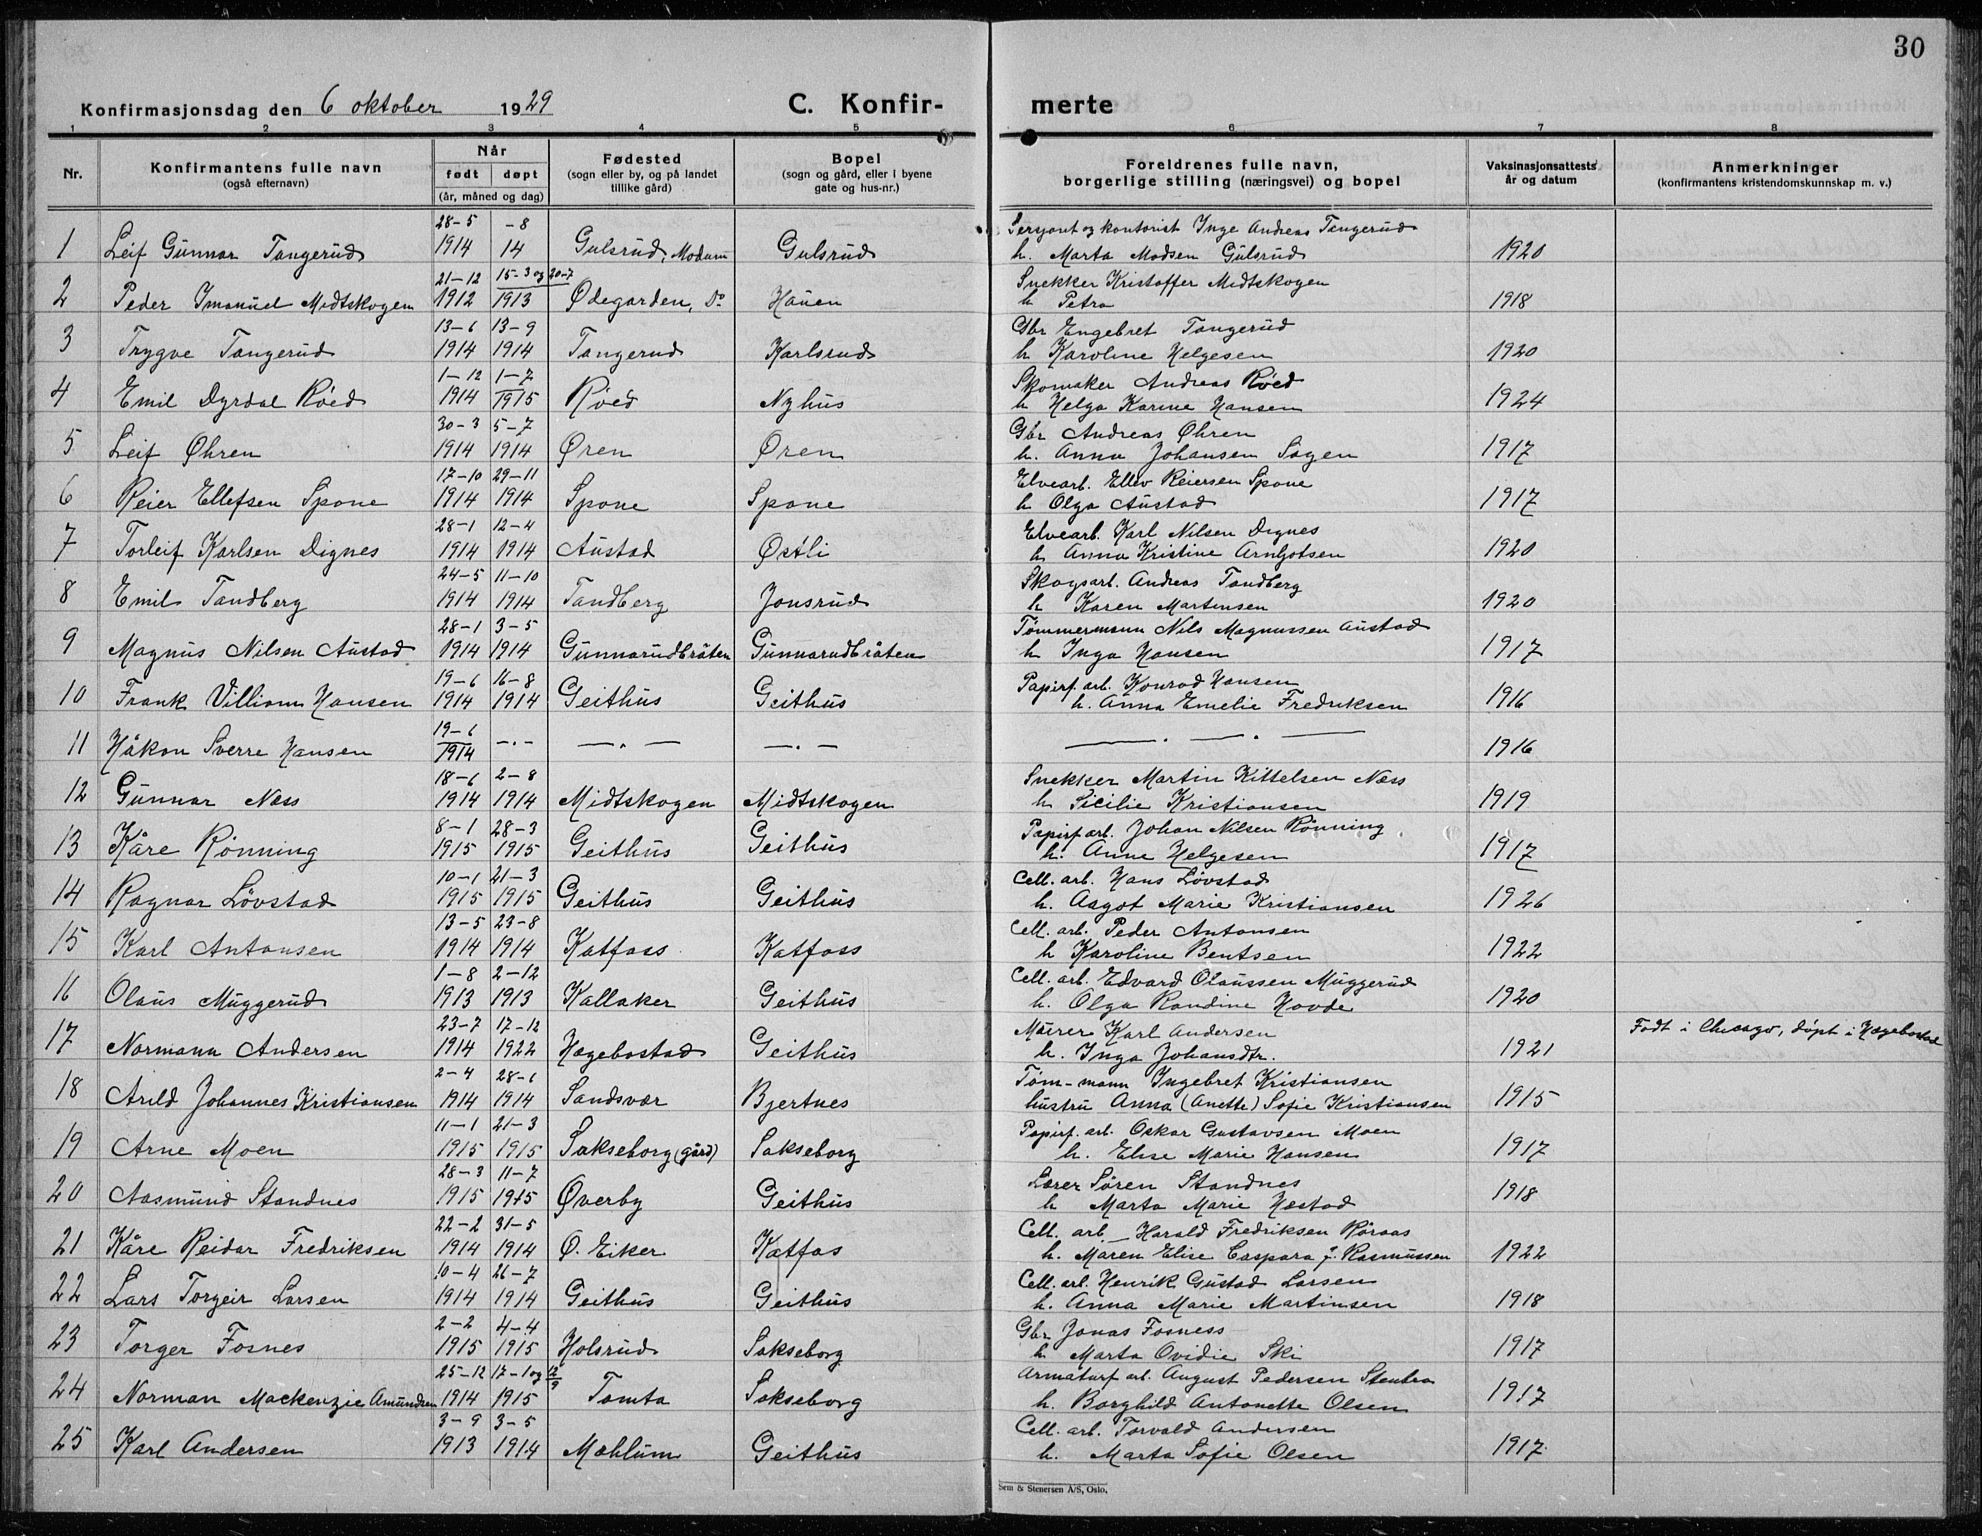 30
Konfirmasjonsdag den 6 oktober 1929
C. Konfir- merte
1 2 3 4 5 6 7 8
Nr.
Konfirmantens fulle navn
(også efternavn)
Når
født døpt
(år, måned og dag)
Fødested
(sogn eller by, og på landet
tillike gård)
Bopel
(sogn og gård, eller i byene
gate og hus-nr.)
Foreldrenes fulle navn,
borgerlige stilling (næringsvei) og bopel
Vaksinasjonsattests
år og datum
Anmerkninger
(konfirmantens kristendomskunnskap m. v.)
28-5 -8 Sersjant og kontorist Inge Andreas Tangerud
1 Leif Gunnar Tangerud 1914 14 Gulsrud, Modum Gulsrud h. Marta Madsen Gulsrud 1920
21-12 15-3 og 20-7 Snekker Kristoffer Midtskogen
2 Peder Imanuel Midtskogen 1912 1913 Ødegarden, Do Hauen h Petra 1918
13-6 13-9 Gbr Engebret Tangerud
3 Trygve Tangerud 1914 1914 Tangerud Karlsrud h Karoline Helgesen 1920
1-12 1-7 Skomaker Andreas Röed
4 Emil Dyrdal Röed 1914 1915 Röed Nyhus h Helga Karine Hansen 1924
30-3 5-7 Gbr Andreas Øhren
5 Leif Øhren 1914 1914 Øren Øren h. Anna Johansen Sagen 1917
17-10 29-11 Elvearb. Ellev Reiersen Spone
6 Reier Ellefsen Spone 1914 1914 Spone Spone h Olga Austad 1917
28-1 12-4 Elvearb. Karl Nilsen Dignes
7 Torleif Karlsen Dignes 1914 1914 Austad Østli h Anna Kristine Arnljotsen 1920
24-5 11-10 Skogsarb. Andreas Tandberg
8 Emil Tandberg 1914 1914 Tandberg Jonsrud h Karen Martinsen 1920
28-1 3-5 Tømmermann Nils Magnussen Austad
9 Magnus Nilsen Austad 1914 1914 Gunnarudbråten Gunnarudbråten h Inga Hansen 1917
19-6 16-8 Papirf. arb. Konrad Hansen
10 Frank Villiam Hansen 1914 1914 Geithus Geithus h. Anna Emelie Fredriksen 1916
19-6
11 Håkon Sverre Hansen 1914 -.- -.- -.- -.-.- 1916
18-6 2-8 Snekker Martin Kittelsen Næss
12 Gunnar Næss 1914 1914 Midtskogen Midtskogen h Sicilie Kristiansen 1919
8-1 28-3 Papirf arb. Johan Nilsen Rönning
13 Kåre Rönning 1915 1915 Geithus Geithus h. Anne Helgesen 1917
10-1 21-3 Cell. arb. Hans Lövstad
14 Ragnar Lövstad 1915 1915 Geithus Geithus h. Aagot Marie Kristiansen 1926
13-5 23-8 Cell. arb. Peder Antonsen
15 Karl Antonsen 1914 1914 Katfoss Katfoss h Karoline Bentsen 1922
1-8 2-12 Cell. arb. Edvard Olaussen Muggerud
16 Olaus Muggerud 1913 1913 Kallaker Geithus h. Olga Randine Hovde 1920
23-7 17-12 Murer Karl Andersen Født i Chicago, döpt i Hægebostad
17 Normann Andersen 1914 1922 Hægebostad Geithus h. Inga Johansdtr. 1921
2-4 28-6 Töm-mann Ingebret Kristiansen
18 Arild Johannes Kristiansen 1914 1914 Sandsvær Bjertnes hustru Anna (Anette) Sofie Kristiansen 1915
11-1 21-3 Papirf. arb. Oskar Gustavsen Moen
19 Arne Moen 1915 1915 Sakseborg (gård) Sakseborg h. Elise Marie Hansen 1917
28-3 11-7 Lærer Sören Standnes
20 Aasmund Standnes 1915 1915 Øverby Geithus h Marta Marie Hæstad 1918
22-2 31-5 Cell. arb. Harald Fredriksen Röraas
21 Kåre Reidar Fredriksen 1914 1914 Ø. Eiker Katfos h. Maren Elise Caspara f. Rasmussen 1922
10-4 26-7 Cell. arb. Henrik Gustad Larsen
22 Lars Torgeir Larsen 1914 1914 Geithus Geithus h. Anna Marie Martinsen 1918
2-2 4-4 Gbr Jonas Fosness
23 Torger Fosnes 1915 1915 Holsrud Sakseborg h Marta Ovidie Ski 1917
25-12 17-1 og 12/9 Armaturf arb. August Pedersen Stenbro
24 Norman Mackenzie Amundsen 1914 1915 Tomta Sakseborg h. Borghild Antonette Olsen 1917
3-9 3-5 Cell. arb. Torvald Andersen
25 Karl Andersen 1913 1914 Mæhlum Geithus h. Marta Sofie Olsen 1917
Sem & Stenersen A/S, Oslo.